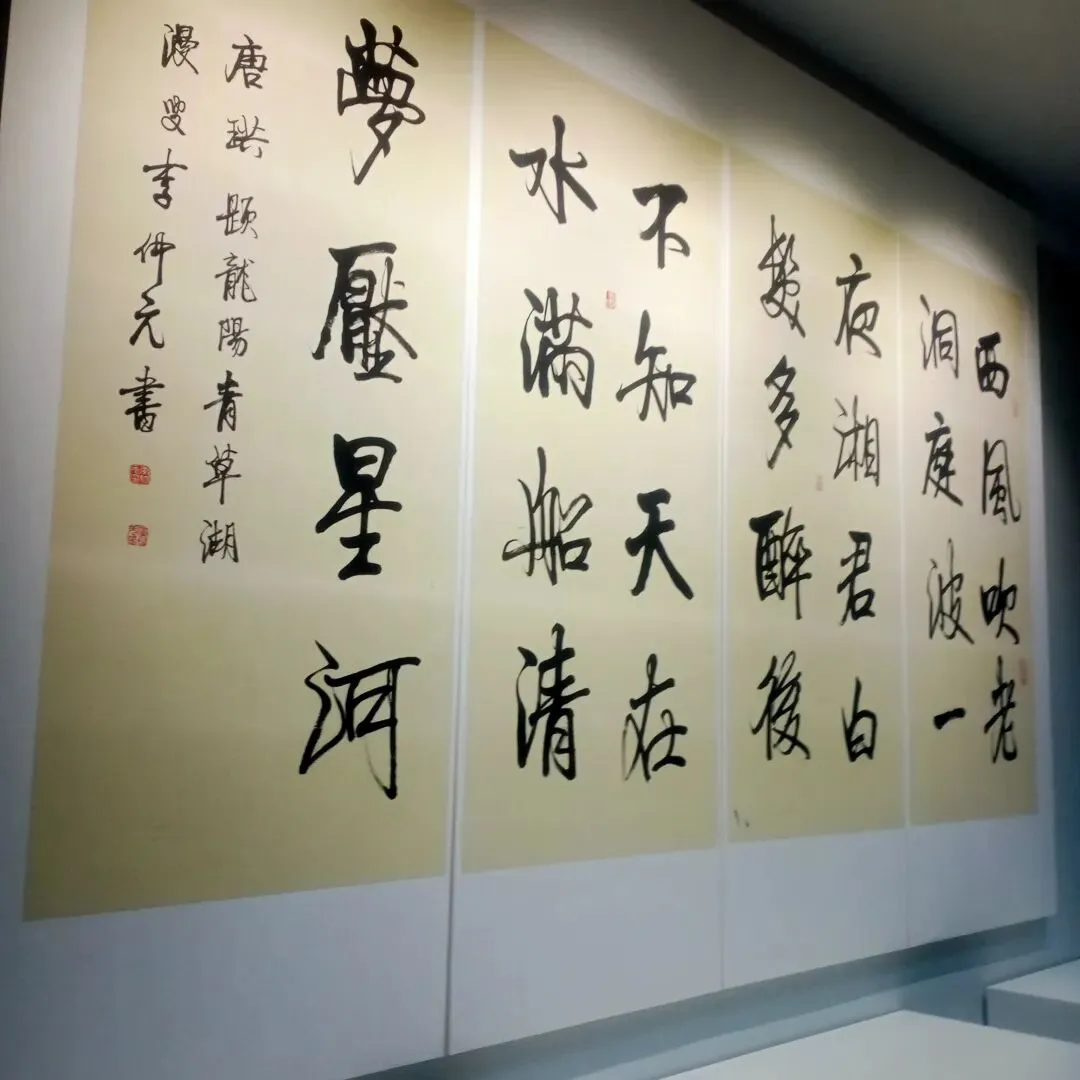 西風吹老
洞庭波一
夜湘君白
髮多醉後
不知天在
水滿船清
夢壓星河
唐珙題龍陽青草湖
漫叟李仲元書